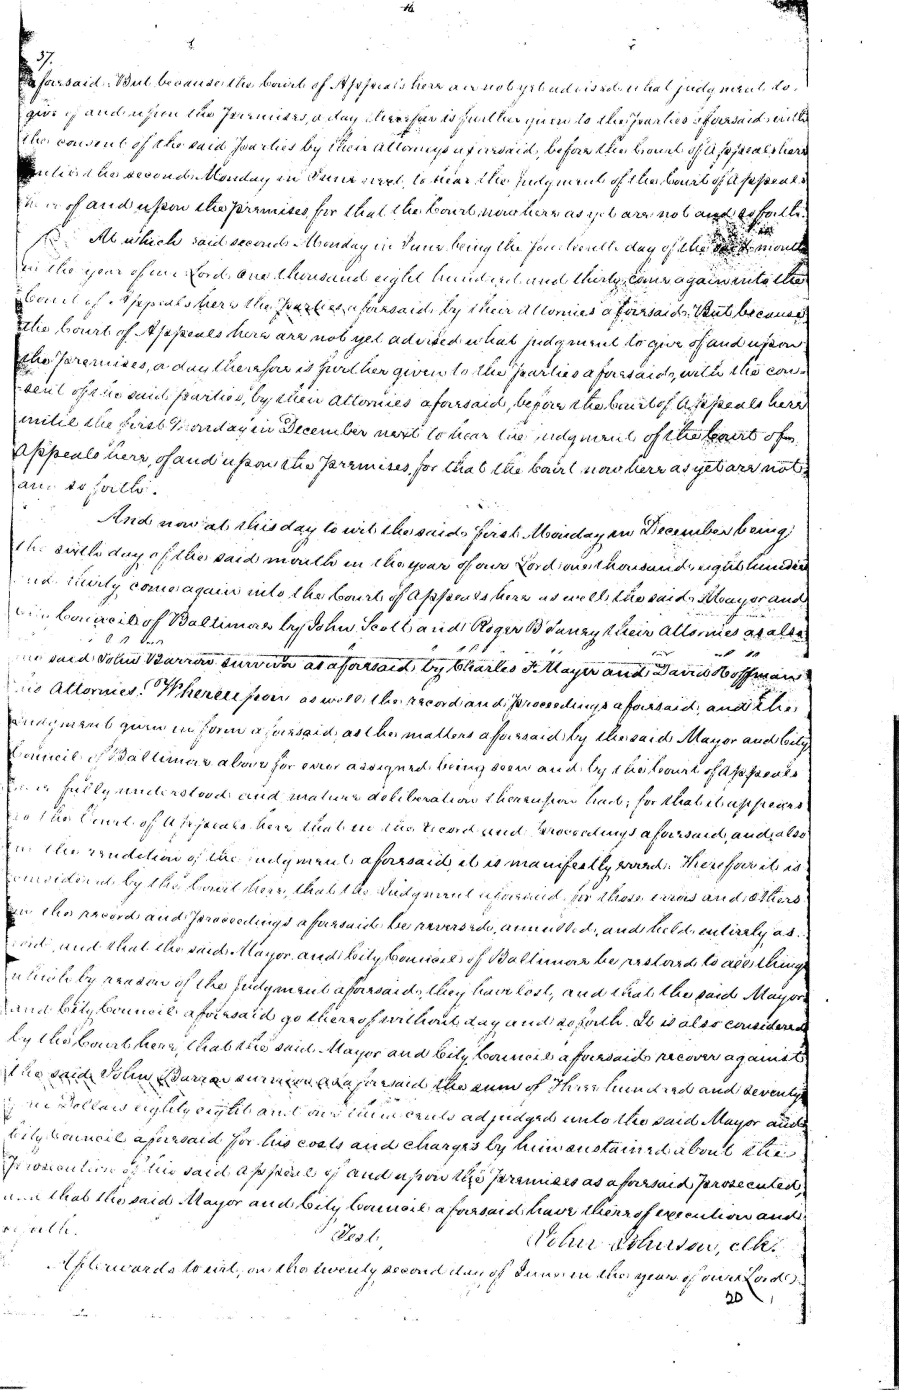 37.
aforesaid. But because the Court of Appeals here are not yet advised what judgment to
give of and upon the Premises, a day therefor is further given to the Parties aforesaid, with
the consent of the said Parties by their attornys aforesaid, before the Court of Appeals here
until the second Monday in June next, to hear the Judgment of the Court of Appeals
here of and upon the premises, for that the Court now here as yet are not and so forth.
At which said second Monday in June being the fourteenth day of the said month
in the year of our Lord one thousand eight hundred and thirty, come again into the
Court of Appeals here the Parties aforesaid by their attornies aforesaid. But because
the Court of Appeals here are not yet advised what judgment to give of and upon
the Premises, a day therefore is further given to the parties aforesaid, with the con-
sent of the said parties, by their attornies aforesaid, before the Court of Appeals here
until the first Monday in December next to hear the judgment of the Court of
Appeals here, of and upon the Premises, for that the Court now here as yet are not
and so forth.
And now at this day to wit the said first Monday in December being
the sixth day of the said month in the year of our Lord one thousand eight hundred
and thirty come again into the Court of Appeals here as well the said Mayor and
City Council of Baltimore by John Scott and Roger B Taney their attornies as also
the said John Barron survivor as aforesaid by Charles F. Mayer and David Hoffman
his Attornies. Whereupon as well the record and Proceedings aforesaid, and the
Judgment given in form aforesaid, as the matters aforesaid by the said Mayor and City
Council of Baltimore above for error assigned being seen and by the Court of Appeals
here fully understood and mature deliberation thereupon had; for that it appears
to the Court of Appeals here that in the record and Proceedings aforesaid, and also
in the rendition of the judgment aforesaid it is manifestly erred. Therefore it is
considered by the Court here, that the Judgment aforesaid for those errors and others
in the record and Proceedings aforesaid be reversed, annulled, and held entirely as
void, and that the said Mayor and City Council of Baltimore be restored to all things
which by reason of the Judgment aforesaid, they have lost, and that the said Mayor
and City Council aforesaid go thereof without day and so forth. It is also considered
by the Court here, that the said Mayor and City Council aforesaid recover against
the said John Barron survivor as aforesaid the sum of Three hundred and seventy
Dollars eighty eight and one third cents adjudged unto the said Mayor and
City Council aforesaid for his costs and charges by him sustained about the
Prosecution of his said appeal of and upon the Premises as aforesaid prosecuted,
and that the said Mayor and City Council aforesaid have thereof execution and
so forth.
Test, John Johnson, clk.
Afterwards to wit, on the twenty second day of June in the year of our Lord
20